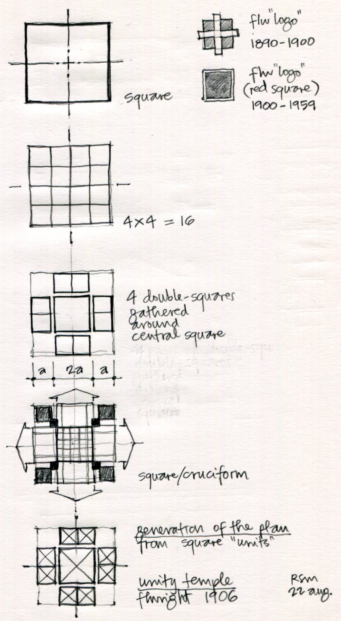 flw "logo"
1890-1900
flw "logo"
(red square)
1900-1959
square
4x4 = 16
4 double-squares
gathered
around
central square
a 2a a
square/cruciform
generation of the plan
from square "units"
unity temple
flwright 1906
RSM
22 aug.